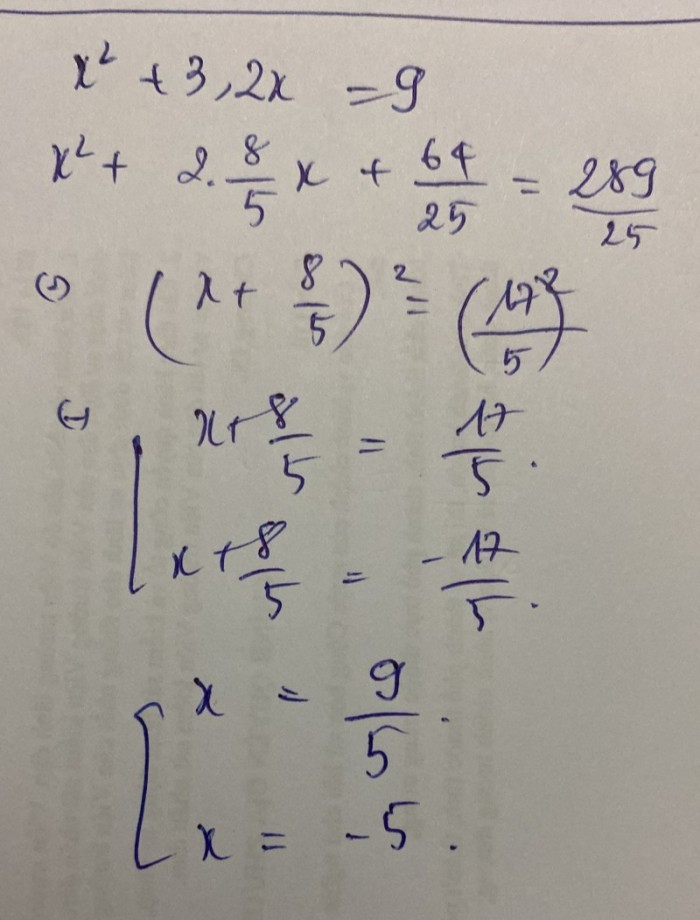 x² + 3,2x = 9
x² + 2. 8/5 x + 64/25 = 289/25
(x + 8/5)² = (17/5)²
[ x + 8/5 = 17/5 .
x + 8/5 = -17/5 .
[ x = 9/5 .
x = -5 .